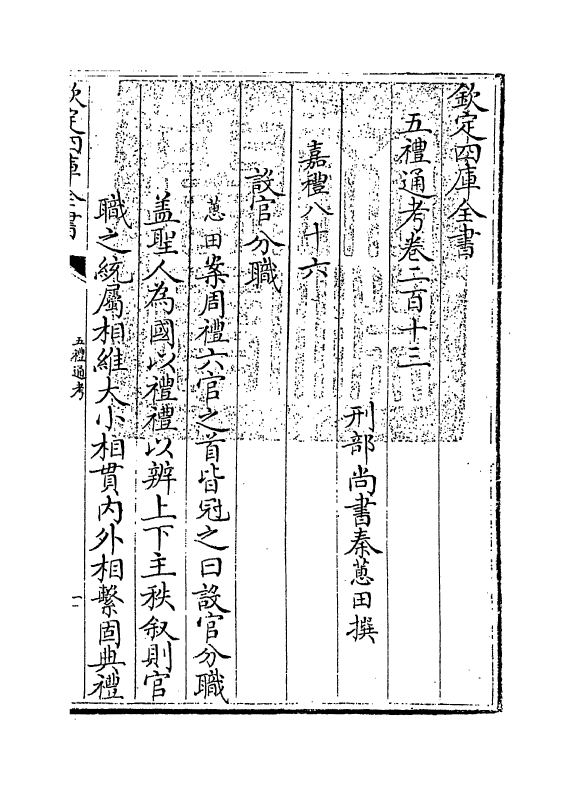 欽定四庫全書
五禮通考卷二百十三
刑部尚書秦蕙田撰
嘉禮八十六
設官分職
蕙田案周禮六官之首皆冠之曰設官分職
蓋聖人為國以禮禮以辨上下主秩叙則官
職之統屬相維大小相貫內外相繫固典禮
欽定四庫全書
五禮通考
一